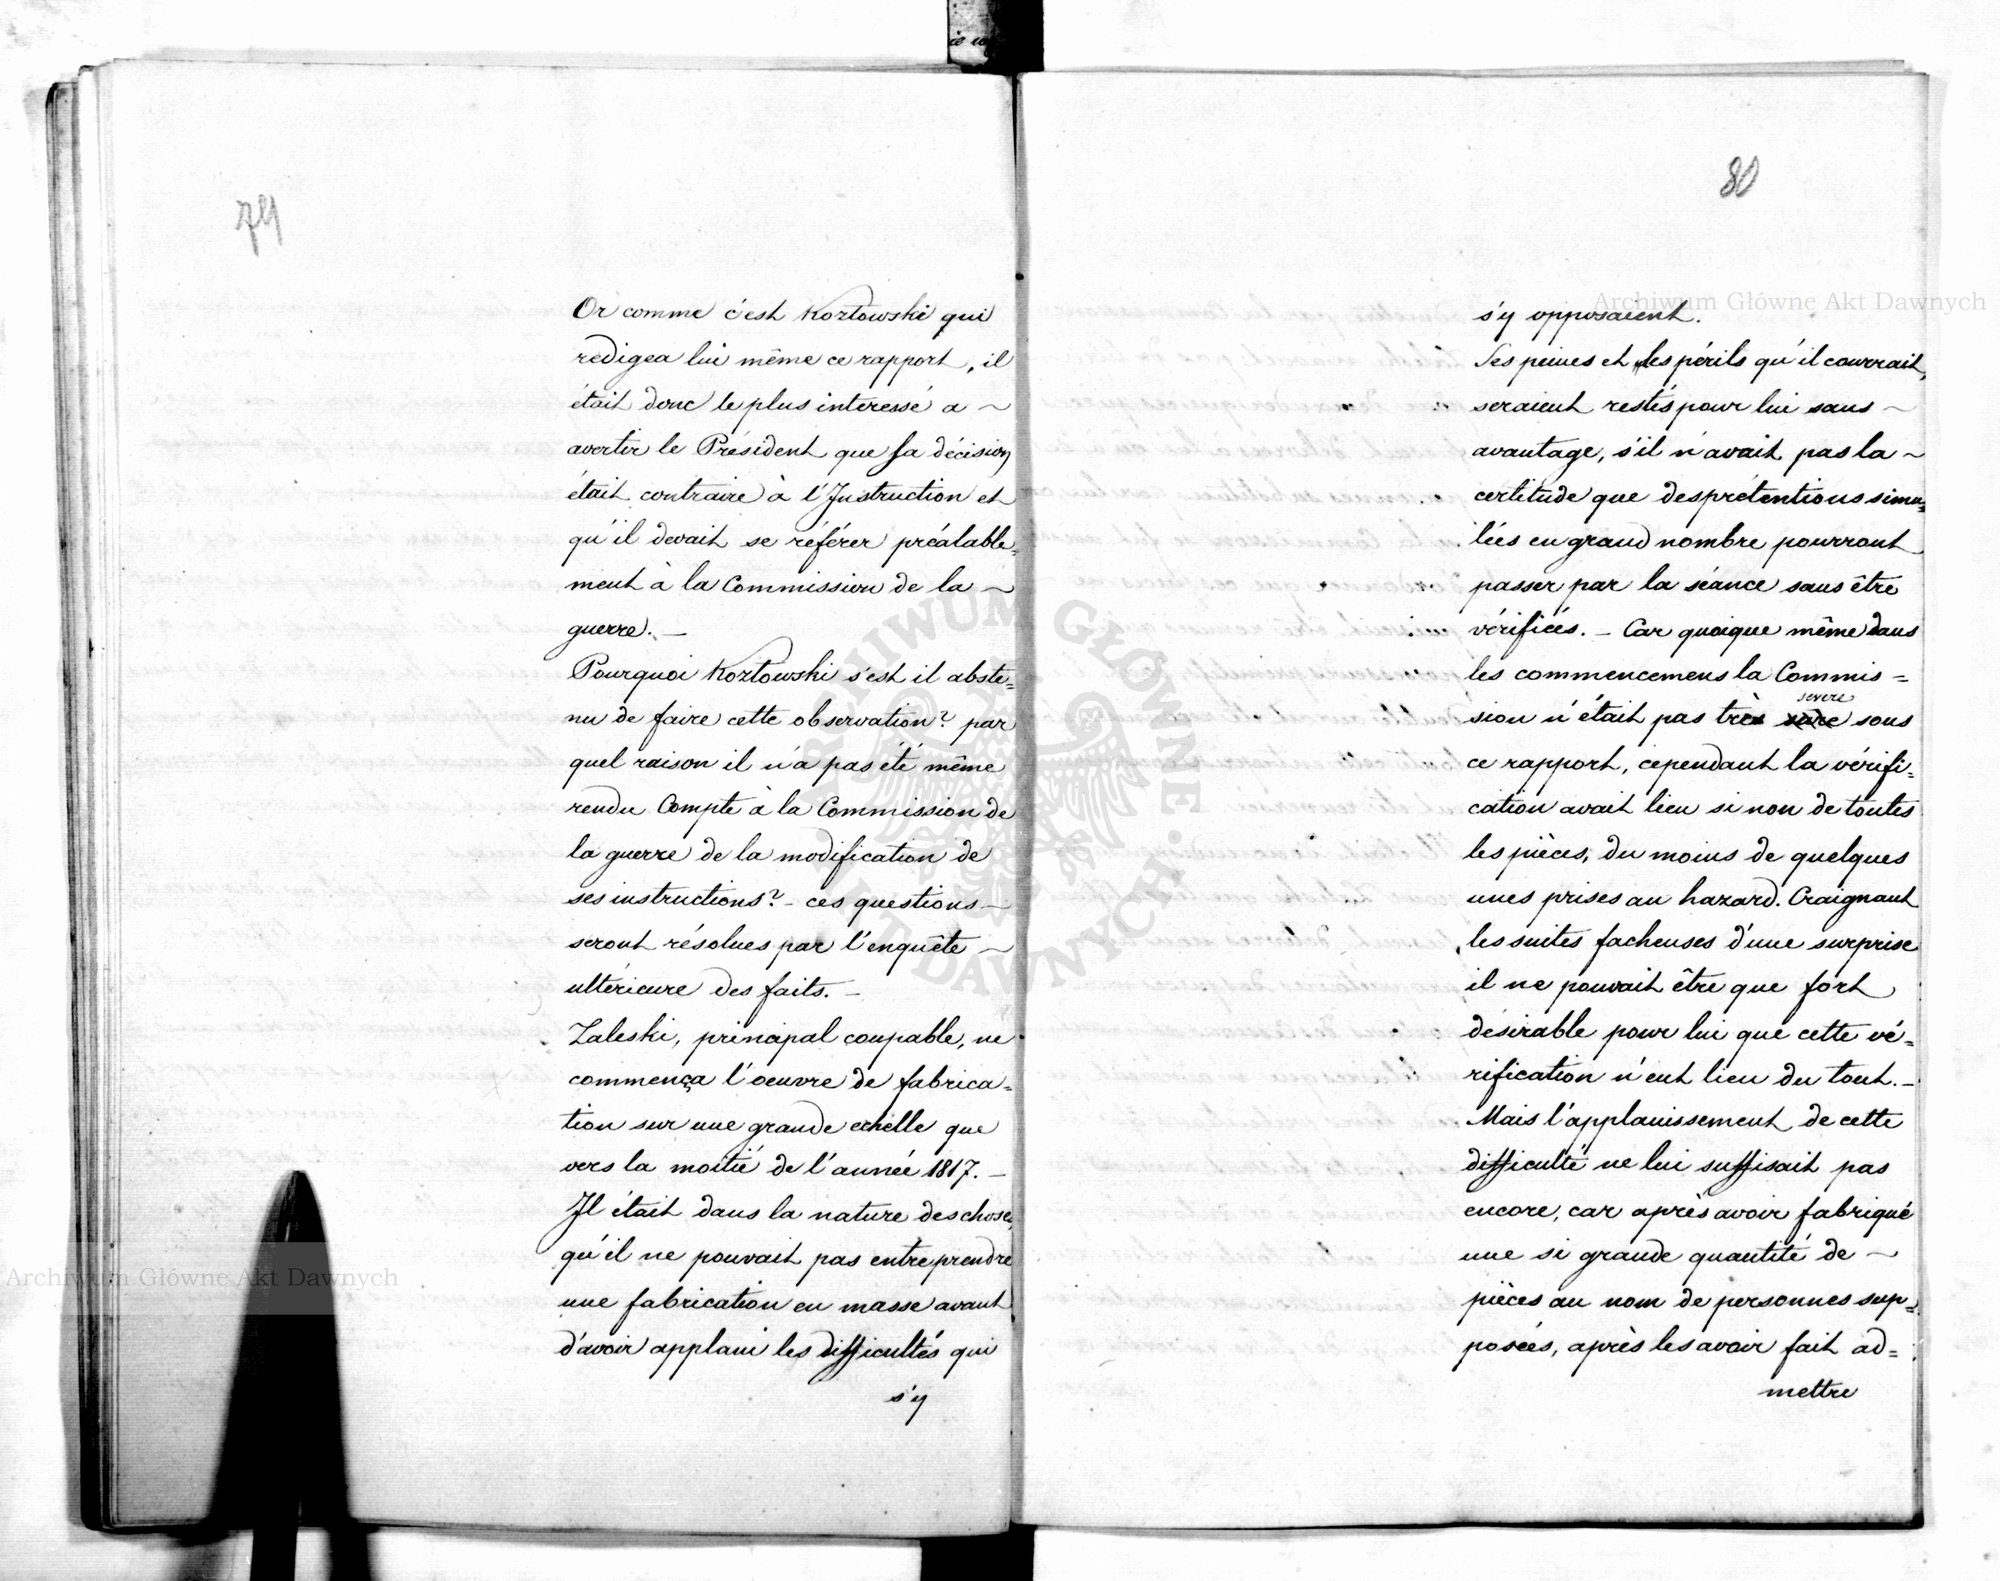 79
Or comme c'est Kozłowski qui
redigea lui même ce rapport, il
était donc le plus interessé a ~
avertir le Président que sa décision
était contraire à l'Instruction et
qu'il devait se référer préalable=
ment à la Commission de la ~
guerre. –
Pourquoi Kozłowski s'est il abste=
nu de faire cette observation? par
quel raison il n'a pas été même
rendu Compte à la Commission de
la guerre de la modification de
ses instructions? – ces questions –
seront résolues par l'enquête ~
ultérieure des faits. –
Zaleski, principal coupable, ne
commença l'oeuvre de fabrica=
tion sur une grande echelle que
vers la moitié de l'année 1817. –
Il était dans la nature des choses
qu'il ne pouvait pas entreprendre
une fabrication en masse avant
d'avoir applani les difficultés qui
s'y
80
s'y opposaient.
Ses peines et les périls qu'il courrait,
seraient restés pour lui sans ~
avantage, s'il n'avait pas la ~
certitude que des prétentions simu=
lées en grand nombre pourront
passer par la séance sans être
vérifiées. – Car quoique même dans
les commencemens la Commis =
severe
sion n'était pas très sous
ce rapport, cependant la vérifi=
cation avait lieu si non de toutes
les pièces, du moins de quelques
unes prises au hazard. Craignant
les suites facheuses d'une surprise
il ne pouvait être que fort
désirable pour lui que cette vé=
rification n'eut lieu du tout. –
Mais l'applanissement de cette
difficulté ne lui suffisait pas
encore, car après avoir fabriqué
une si grande quantité de ~
pièces au nom de personnes sup=
posées, après les avoir fait ad=
mettre
Archiwum Główne Akt Dawnych
Archiwum Główne Akt Dawnych
ARCHIWUM GŁÓWNE AKT DAWNYCH